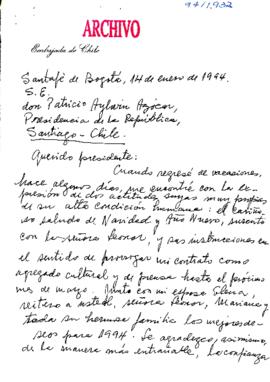 94/1932
ARCHIVO
Embajada de Chile
Santafé de Bogotá, 14 de enero de 1994.
S.E.
don Patricio Aylwin Azócar,
Presidencia de la República,
Santiago-Chile.
Querido presidente:
Cuando regresé de vacaciones,
hace algunos días, me encontré con la ex-
presión de dos actitudes suyas muy propias
de su alta condición humana: el cariño-
so saludo de Navidad y Año Nuevo, suscrito
con la señora Leonor, y sus instrucciones en
el sentido de prorrogar mi contrato como
agregado cultural y de prensa hasta el próximo
mes de mayo. Junto con mi esposa Elena,
reitero a usted, señora Leonor, Mariana y
toda su hermosa familia los mejores de-
seos para 1994. Le agradezco, asimismo,
de la manera más entrañable, la confianza